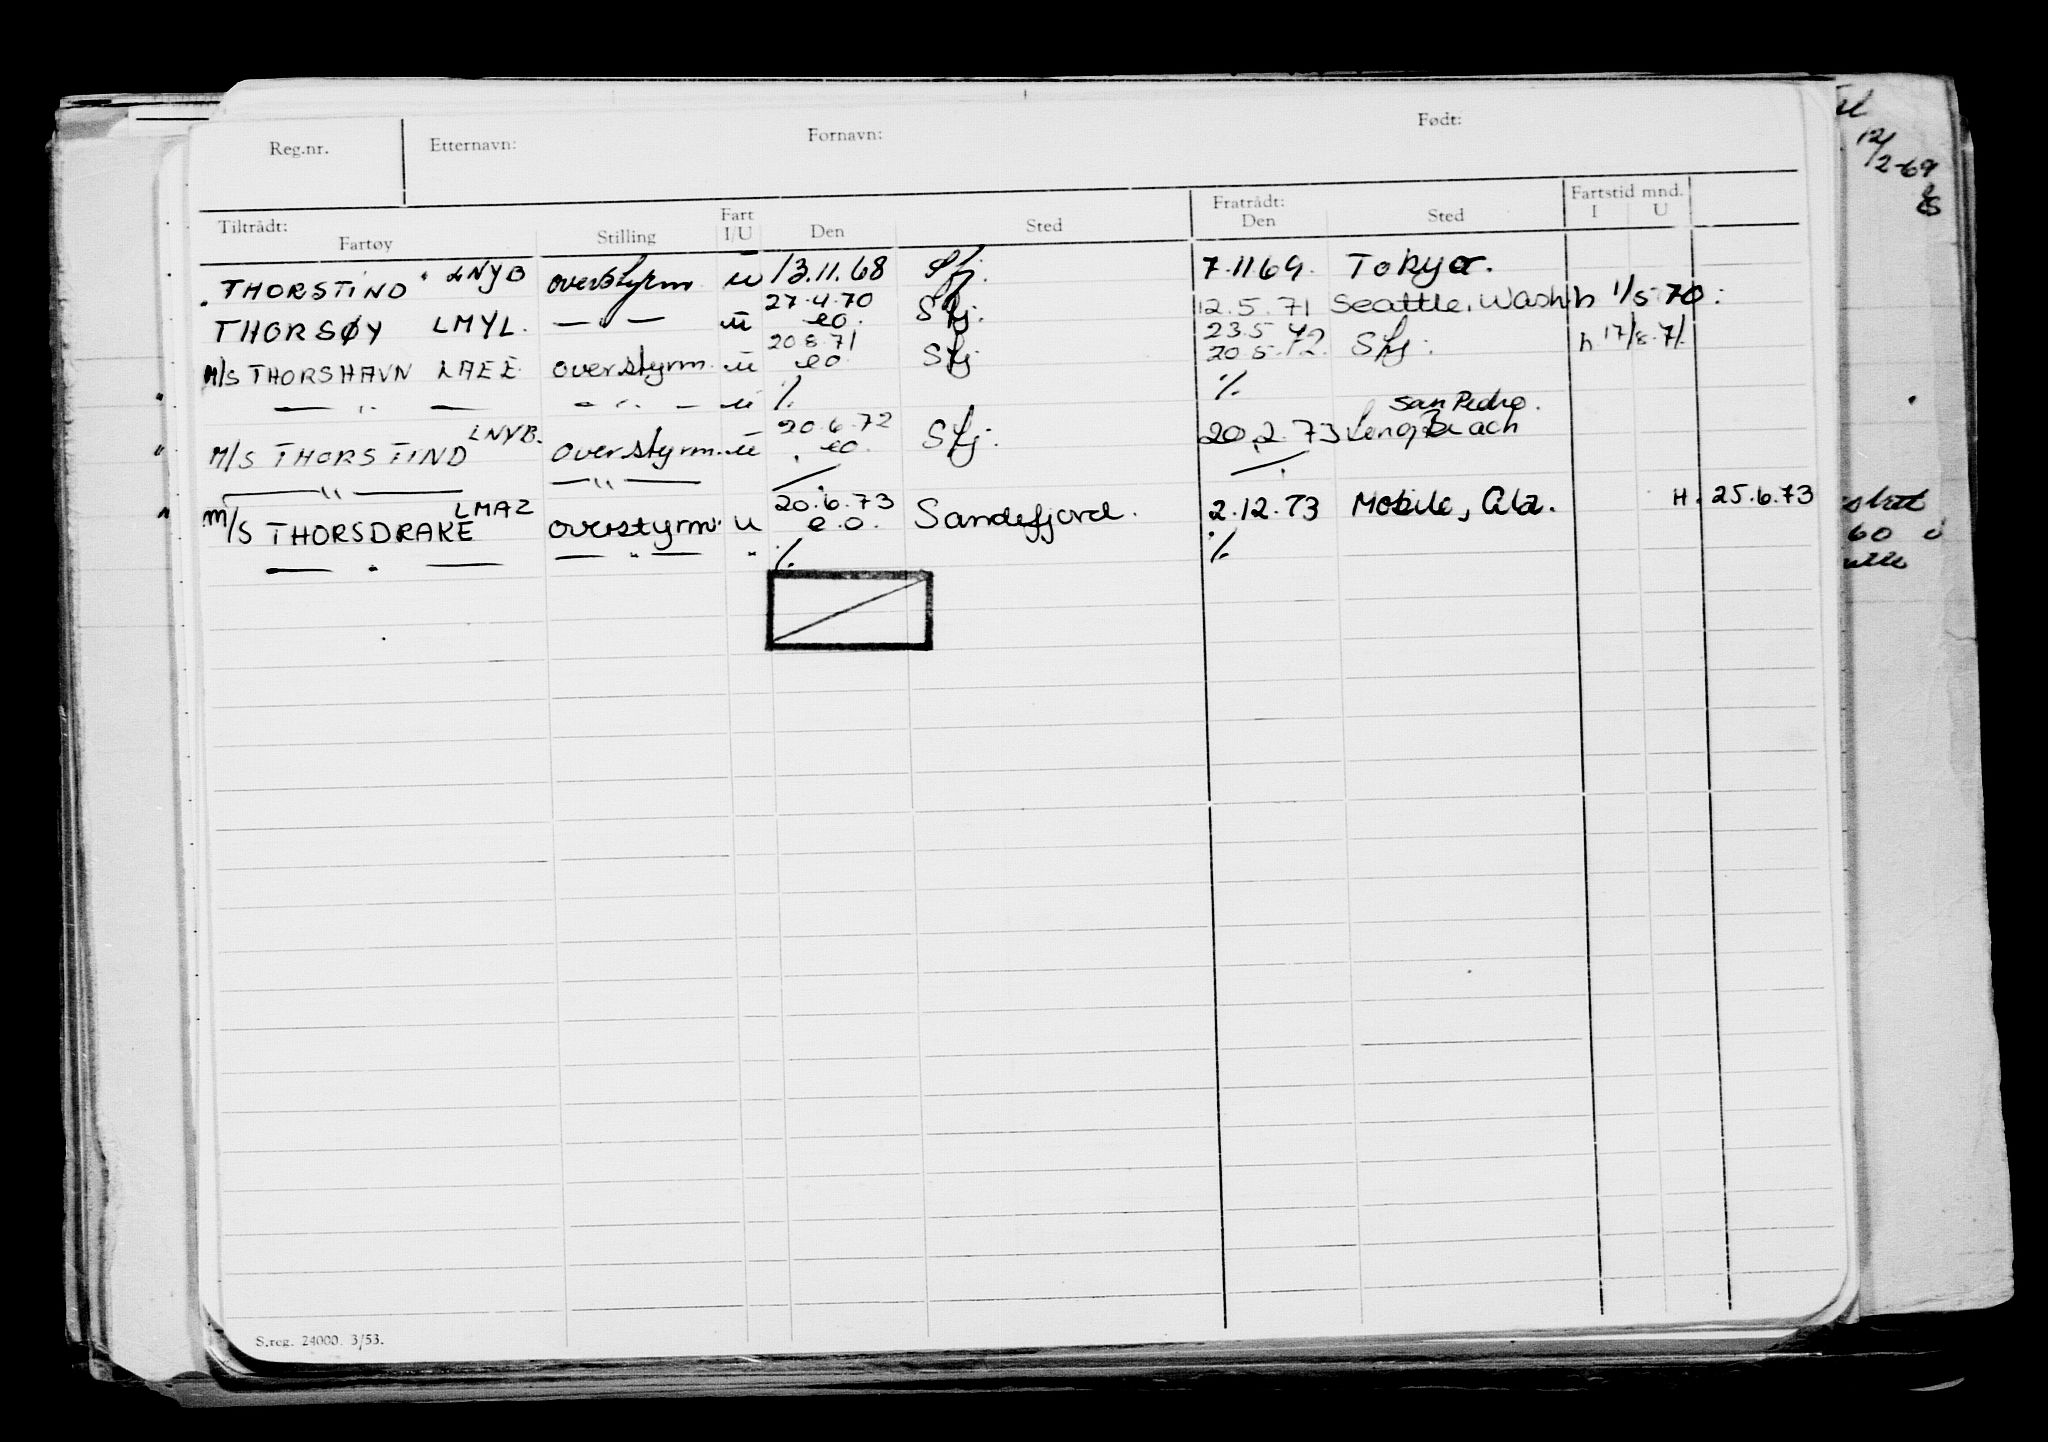 Reg.nr. Etternavn: Fornavn: Født:
Tiltrådt: Fartøy Stilling Fart I/U Den Sted Fratrådt: Den Sted Fartstid mnd. I U
"THORSTIND" LNYB overstyrm u 13.11.68 Sfj. 7.11.69. Tokyo.
27.4.70
THORSØY LMYL. — " — u eo. Sfj. 12.5.71 Seattle, Wash. h 1/5 70.
20.8.71 23.5.72
M/S THORSHAVN LAEE overstyrm. u eo. Sfj 20.5.72. Sfj. h. 17/8.71.
— " — — " — u % %
LNYB. 20.6.72 San Pedro.
M/S THORSTIND overstyrm. u eo. Sfj. 20.2.73 Long Beach
— " — — " — % %
LMAZ 20.6.73
M/S THORSDRAKE overstyrm. u e.o. Sandefjord. 2.12.73 Mobile, Ala. H. 25.6.73
— " — — " — " % %
S.reg. 24000. 3/53.
12/2-69
60